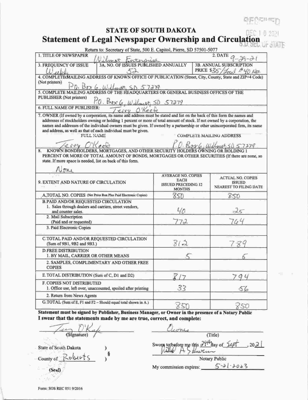 STATE OF SOUTH DAKOTA
Statement of Legal Newspaper Ownership and Circulation
Return to: Secretary of State, 500 E. Capitol, Pierre, SD 57501-5077
1. TITLE OF NEWSPAPER Wilmot Enterprise
2. DATE 9-29-21
3. FREQUENCY OF ISSUE
3A. NO. OF ISSUES PUBLISHED ANNUALLY 52
3B. ANNUAL SUBSCRIPTION PRICE
4. COMPLETE MAILING ADDRESS OF KNOWN OFFICE OF PUBLICATION (Street, City, County, State and ZIP+4 Code) (Not printers)
P.O. Box 6, Wilmot, SD 57279
5. COMPLETE MAILING ADDRESS OF THE HEADQUARTERS OR GENERAL BUSINESS OFFICES OF THE PUBLISHER (Not printers)
P.O. Box 6, Wilmot, SD 57279
6. FULL NAME OF PUBLISHER: Terry O'Keefe
7. OWNER (If owned by a corporation, its name and address must be stated and list on the back of this form the names and
addresses of stockholders owning or holding 1 percent or more of total amount of stock. If not owned by a corporation, the
names and addresses of the individual owners must be given. If owned by a partnership or other unincorporated firm, its name
and address, as well as that of each individual must be given.
FULL NAME COMPLETE MAILING ADDRESS
Terry O'Keefe P.O. Box 6, Wilmot SD 57279
8. KNOWN BONDHOLDERS, MORTGAGEES, AND OTHER SECURITY HOLDERS OWNING OR HOLDING 1
PERCENT OR MORE OF TOTAL AMOUNT OF BONDS, MORTGAGES OR OTHER SECURITIES (If there are none, so
state. If more space is needed, list on back of this form.
None
9. EXTENT AND NATURE OF CIRCULATION
AVERAGE NO. COPIES EACH ISSUED PRECEDING 12 MONTHS
ACTUAL NO. COPIES ISSUED NEAREST TO FILING DATE
A. TOTAL NO. COPIES 850 850
B. PAID AND/OR REQUESTED CIRCULATION
1. Sales through dealers and carriers, street vendors, and counter sales 40 25
2. Mail Subscription (Paid and or requested) 772 764
3. Paid Electronic Copies
C. TOTAL PAID AND/OR REQUESTED CIRCULATION
(Sum of 9B1, 9B2 and 9B3.) 812 789
D. FREE DISTRIBUTION
1. BY MAIL, CARRIER OR OTHER MEANS 5 5
2. SAMPLES, COMPLIMENTARY AND OTHER FREE COPIES
E. TOTAL DISTRIBUTION (Sum of C, D1 and D2) 817 794
F. COPIES NOT DISTRIBUTED
1. Office use, left over, unaccounted, spoiled after printing 33 56
2. Return from News Agents
G. TOTAL (Sum of E, F1 and F2 - Should equal total shown in A.) 850 850
Statement must be signed by Publisher, Business Manager, or Owner in the presence of a Notary Public
I swear that the statements made by me are true, correct, and complete:
Terry O'Keefe Owner
(Signature) (Title)
State of South Dakota )
County of Roberts )
(Seal)
Sworn to before me this 29th day of Sept, 2021
Notary Public
My commission expires: 5-21-2023